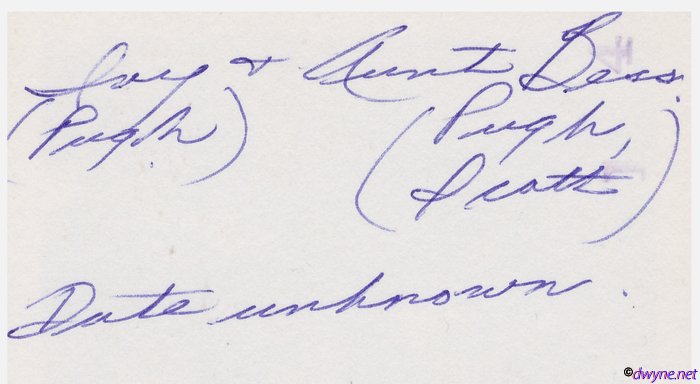 + Aunt Bess.
(Pugh) (Pugh,
Scott)
Date unknown.
©dwyne.net